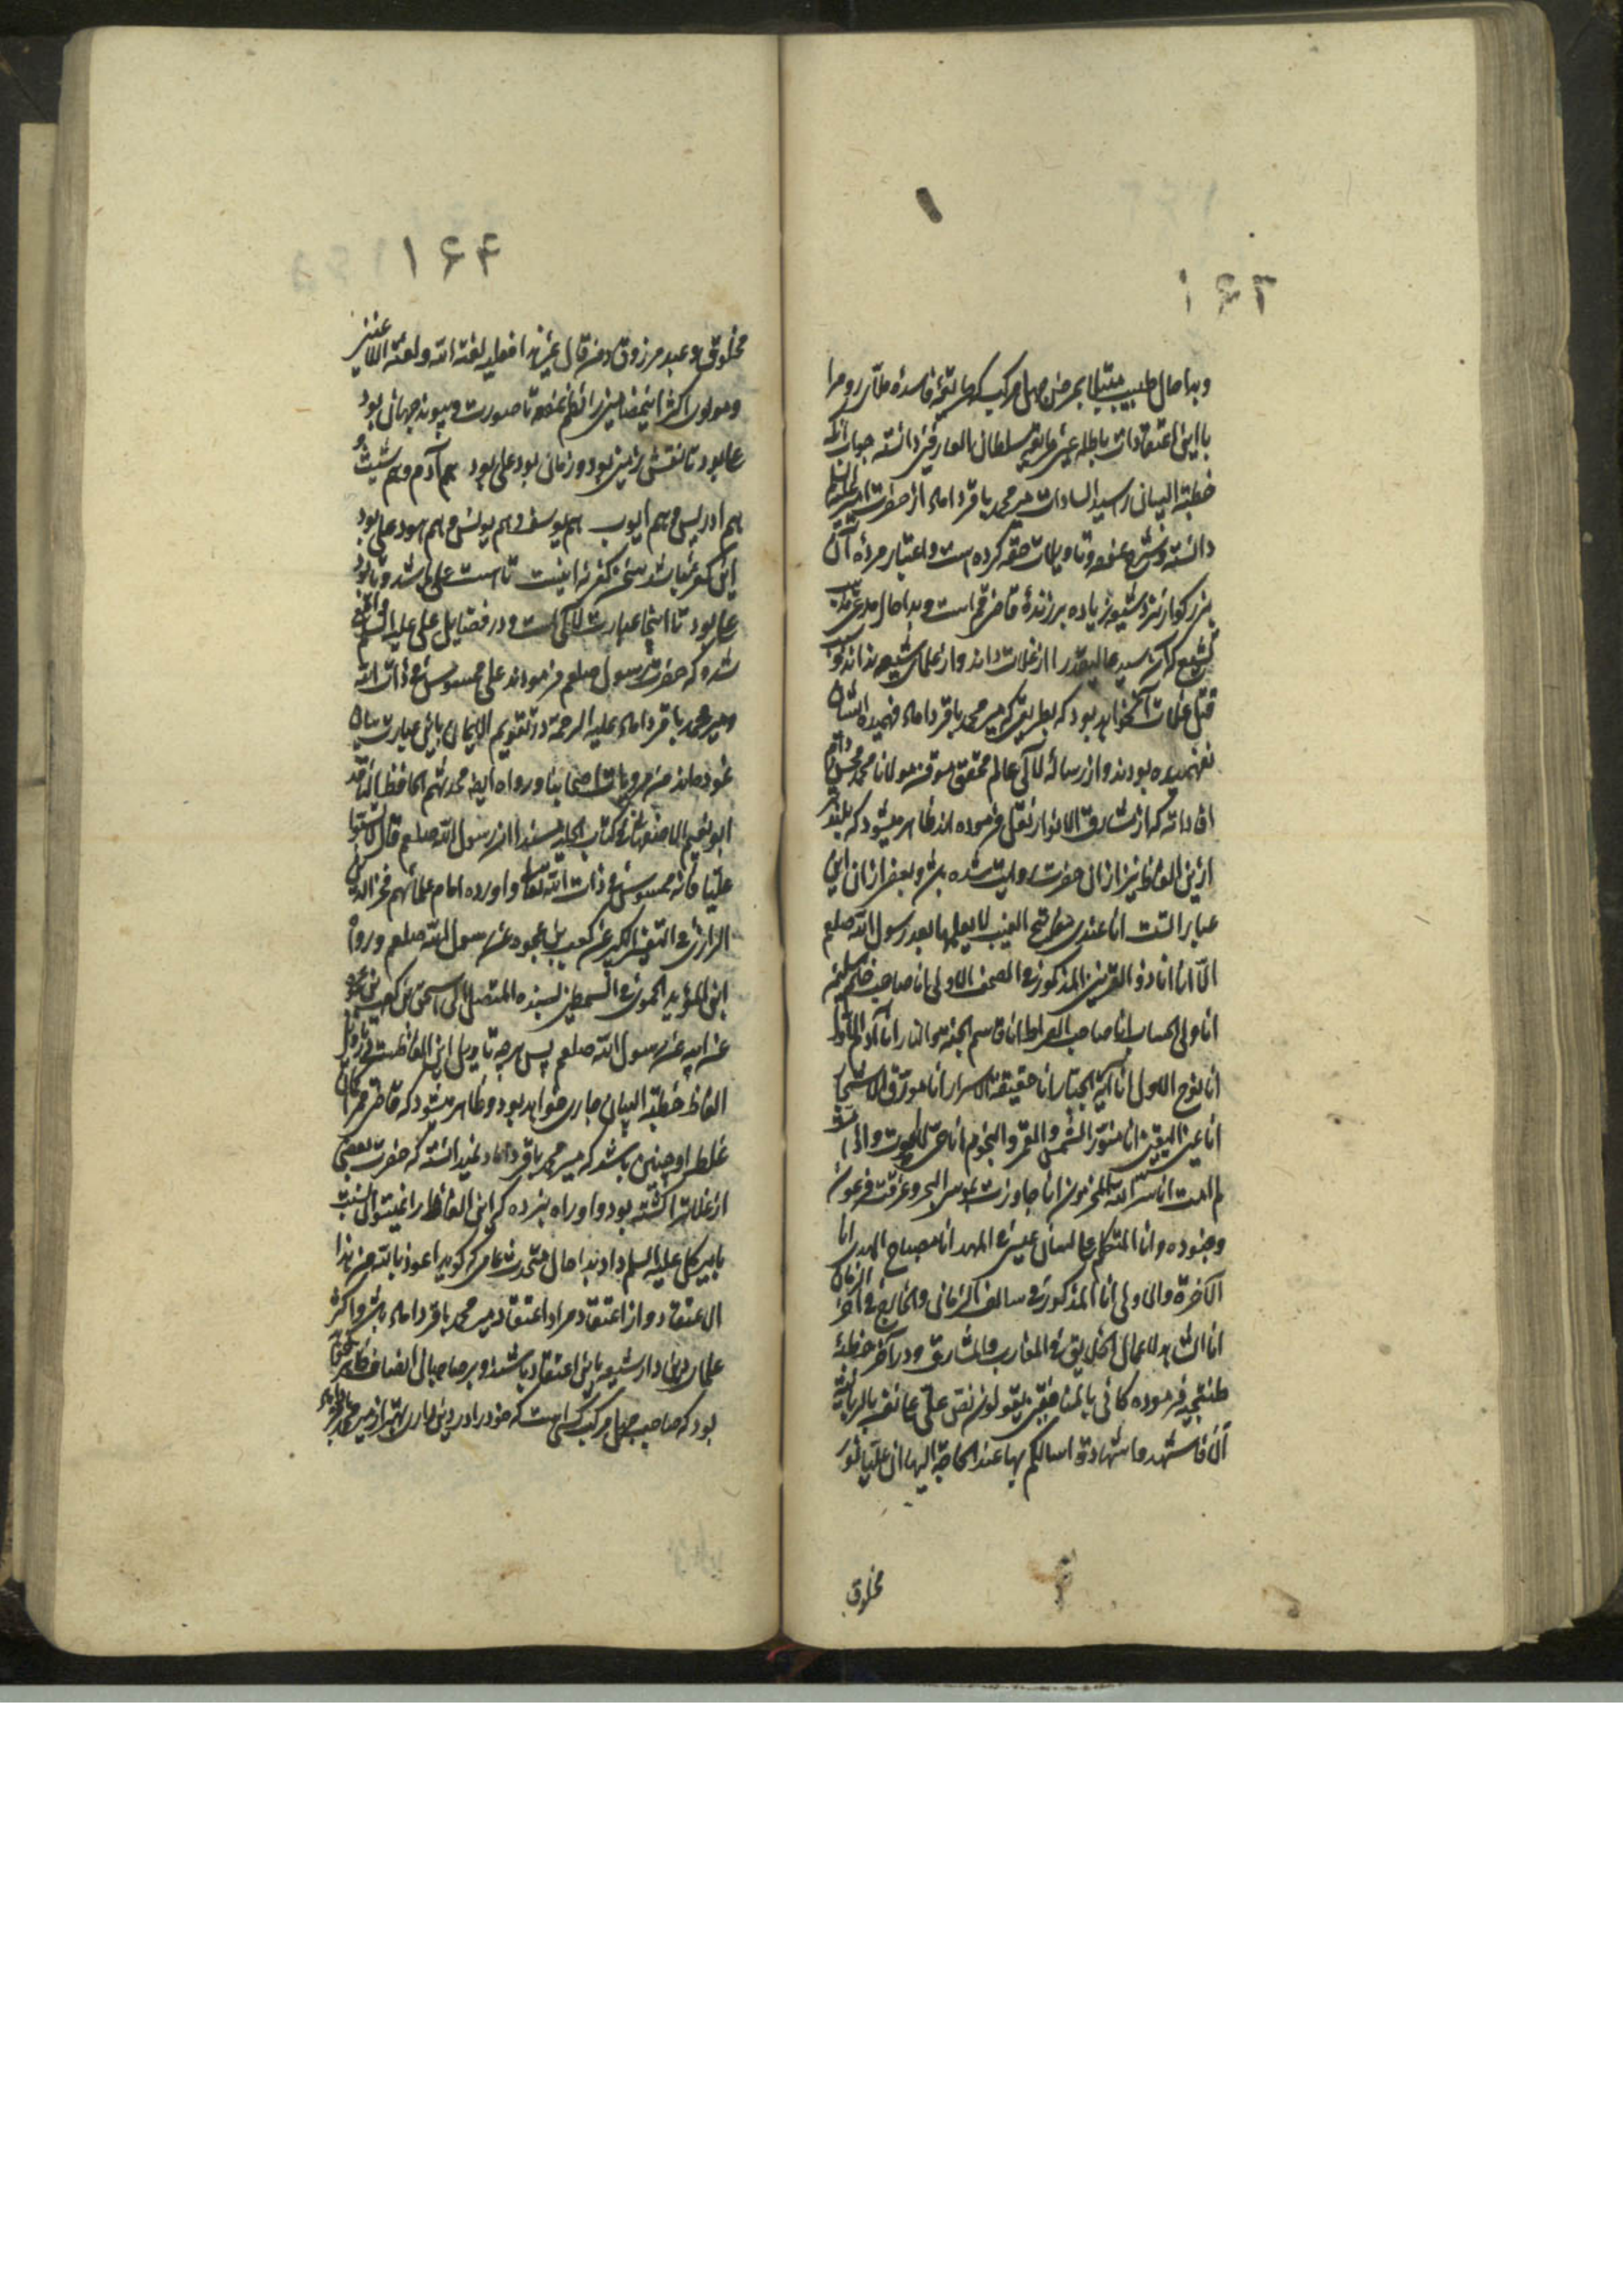 ۱۶۳
وبدا حال طبیب مبتلا بمرض جهل مرکب که رایحهٔ فاسدهٔ ملای روم را
با این اعتقادات باطله عین حقایق سلطان العارفین دانسته جناب آنکه
خطبة البیان را سید السادات میر محمد باقر داماد از حضرت امیر علیه السلم
دانسته و شرح نموده و تاویلات حقه کرده است و اعتبار مردهٔ آن
بزرگوار نزد شیعه زیاده بر زندهٔ قاضی قم است وبدا حال مدعی
تشیع که آن سید عالیقدر را از غلات داند و از علمای شیعه نداند
قتل غلات آنکه خواهد بود که بطریقی که میر محمد باقر داماد فهمیده ایشان
نفهمیده بودند و از رسالهٔ لآلی عالم محقق موفق مولانا محمد محسن دام
افاداته که از مشارق الانوار نقل فرموده اند ظاهر میشود که بلندتر
ازین الفاظ نیز از آن حضرت روایت شده باشد و بعضی از آن این
عبارات است انا عندی مفاتح الغیب لا یعلمها بعد رسول الله صلعم
الا انا انا ذو القرنین المذکور فی الصحف الاولی انا صاحب خاتم سلیمن
انا ولی الحساب انا صاحب الصراط انا قاسم الجنة و النار انا آدم الاول
انا نوح الاول انا آیة الجبار انا حقیقة الاسرار انا مورق الاشجار
انا عین الیقین انا منور الشمس والقمر والنجوم انا حی لا یموت واذا
لم امت انا سر الله المخزون انا جاوزت بموسی البحر وغرقت فرعون
وجنوده وانا المتکلم علی لسان عیسی فی المهد انا مصباح الهدی انا
الآخرة والاولی انا المذکور فی سالف الزمان والخارج فی آخر الزمان
انا الشاهد لاعمال الخلایق فی المغارب والمشارق ودر آخر خطبهٔ
طتنجیه فرموده کانی بالمنافقین یقولون نص علی علی نفسه بالربانیة
الا فاشهدوا شهادة اسالکم بها عند الحاجة الیها ان علیا نور
مخلوق
۱۶۴
مخلوق وعبد مرزوق ومن قال غیر هذا فعلیه لعنة الله ولعنة اللاعنین
ومولوی اکثر این مضامین را نظم نموده تا صورت پیوند جهان بود
علی بود تا نقش زمین بود و زمان بود علی بود هم آدم وهم شیث
هم ادریس وهم ایوب هم یوسف وهم یونس وهم هود علی بود
این کفر نباشد سخن کفر نه اینست تا هست علی باشد وتا بود
علی بود تا اینجا عبارت لآلی است ودر فضایل علی علیه السلم واقع
شده که حضرت رسول صلعم فرمودند علی ممسوس فی ذات الله
ومیر محمد باقر داماد علیه الرحمة در تقویم الایمان باین عبارت بیان
نموده اند من مرویات اصحابنا ورواه ایضا محدثهم الحافظ الناقد
ابو نعیم الاصفهانی فی کتاب الحلیة مسندا ان رسول الله صلعم قال لا تسبوا
علیا فانه ممسوس فی ذات الله تعالی واورده امام علمائهم فخر الدین
الرازی فی التفسیر الکبیر عن کعب بن عجره عن رسول الله صلعم ورواه
ابن المؤید الحموی فی السمطین بسنده المتصل الی اسحق بن کعب بن عجره
عن ابیه عن رسول الله صلعم پس هرچه تاویل این الفاظست در تاویل
الفاظ خطبة البیان جاری خواهد بود وظاهر میشود که قاضی قم را گمان
غلط او چنین باشد که میر محمد باقر داماد نمیدانسته که حضرت بعضی
از غلات را کشته بود و او راه نبرده که این الفاظ را نمیتوان نسبت
بامیر کل علیه السلم داد بدا حال متحدث عامی که گوید اعوذ بالله من هذا
الاعتقاد و از اعتقاد مراد اعتقاد میر محمد باقر داماد باشد و اکثر
علمای دین دار شیعه باین اعتقاد باشند و بر صاحبان انصاف ظاهر
بود که صاحب جهل مرکب کسی است که خود را در دین داری بهتر از میر محمد باقر داماد